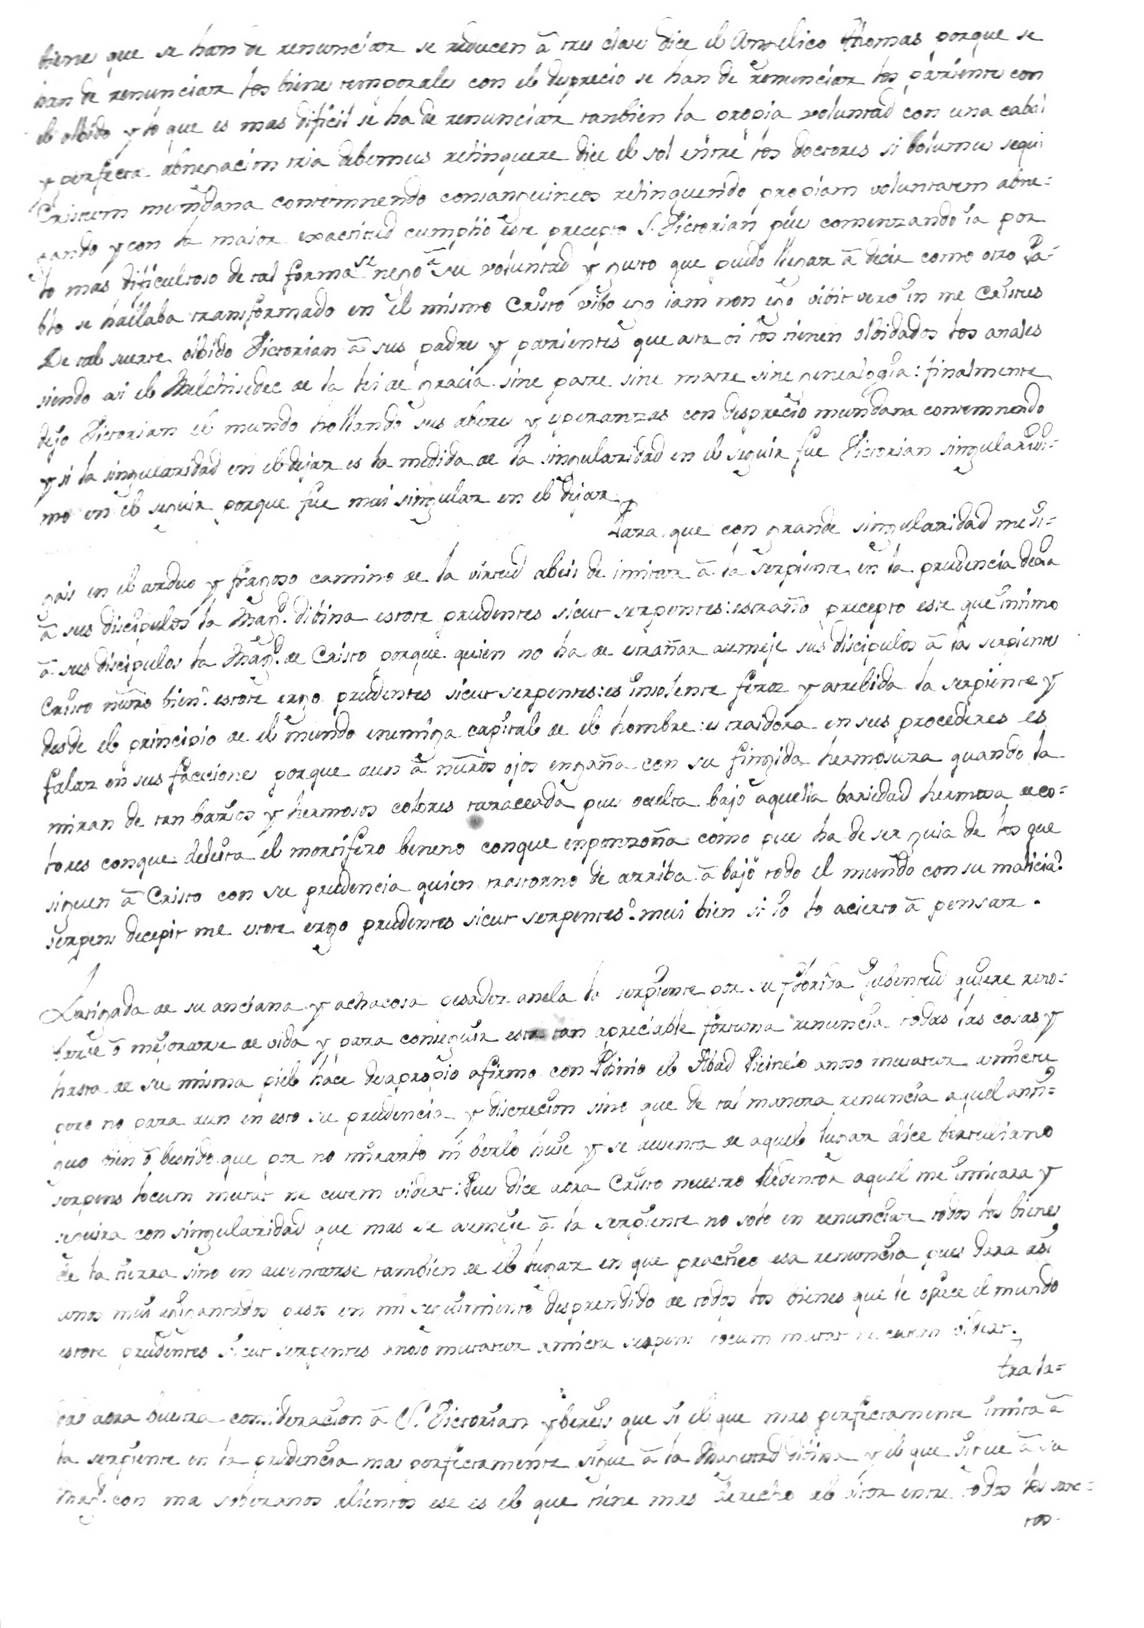 tiene que se han de renunciar se reducen ā tres clase dice el Angelico thomas porque se
han de renunciar los biene temporales con el desprecio se han de renunciar los pariente con
el olbido y lo que es mas dificil se ha de renunciar tanbien la propia voluntad con una cabal
y perfecta abnegacion tria debemus relinquere dice el sol entre los doctores si bolumus sequi
Cristum mundana contemnendo consanguineos relinquendo propiam voluntatem abne-
gando y con la maior exactitud cumplio este precepto S. Victorian pues comenzando ia por
lo mas dificultoso de tal forma se nego ā su voluntad y gusto que pudo llegar ā decir como otro Pa-
blo se hallaba transformado en el mismo Cristo vibo ego iam non ego vibit vero in me Cristus
De tal suerte olbido Victorian ā sus padres y parientes que asta oi los tienen olbidados los anales
siendo asi el Melchisedec de la lei de gracia sine patre sine matre sine genealogia: finalmente
dejo Victorian el mundo hollando sus aberes y esperanzas con desprecio mundana contemnendo
y si la singularidad en el dejar es la medida de la singularidad en el seguir fue Victorian singularisi-
mo en el seguir porque fue mui singular en el dejar
Para que con grande singularidad me si-
gais en el arduo y fragoso camino de la virtud abeis de imitar ā la serpiente en la prudencia decia
ā sus discipulos la Magd. dibina estote prudentes sicut serpentes: estraño precepto este que intimo
ā sus discipulos la Magd. de Cristo porque quien no ha de estrañar asemeje sus discipulos ā la serpiente
Cristo nuño bien. estote ergo prudentes sicut serpentes: es insolente feroz y atrebida la serpiente y
desde el principio de el mundo enemiga capital de el hombre: es traidora en sus procederes es
falaz en sus facciones porque aun ā nuños ojos engaña con su fingida hermosura quando la
miran de tan barios y hermosos colores taraceada pues oculta bajo aquella bariedad hermosa de co-
lores conque deleita el mortifero beneno conque enponzoña como pues ha de ser guia de los que
siguen ā Cristo con su prudencia quien trastorno de arriba ā bajo todo el mundo con su malicia?
serpens decepit me estote ergo prudentes sicut serpentes? mui bien si io lo acierto ā pensar.
Fatigada de su anciana y achacosa pesadez anela la serpiente por su florida jubentud quiere reno-
barse ō mejorarse de vida y para conseguir esta tan apreciable fortuna renuncia todas las cosas y
hasta de su misma piel hace desapropio afirmo con Plinio el Abad Picinelo anno mutatur amictu
pero no para aun en esto su prudencia y discrecion sino que de tal manera renuncia aquel anti-
guo bien ō bestido que por no mirarlo ni berlo huie y se ausenta de aquel lugar dice tertuliano
serpens locum mutat ne cutem videat: Pues dice aora Cristo nuestro Redentor aquel me imitara y
seguira con singularidad que mas se asemeje ā la serpiente no solo en renunciar todos los bienes
de la tierra sino en ausentarse tambien de el lugar en que practico esa renuncia pues dara asi
unos mui agigantados pasos en mi seguimiento desprendido de todos los bienes que le ofrece el mundo
estote prudentes sicut serpentes anno mutatur amictu serpens locum mutat ne cutem videat.
trasla-
dad aora buestra consideracion ā S. Victorian y bereis que si el que mas perfectamente imita ā
la serpiente en la prudencia mas perfectamente sigue ā la Magestad dibina y el que sigue ā su
Magd. con mas soberanos alientos ese es el que tiene mas derecho al vitor entre todos los san-
tos.